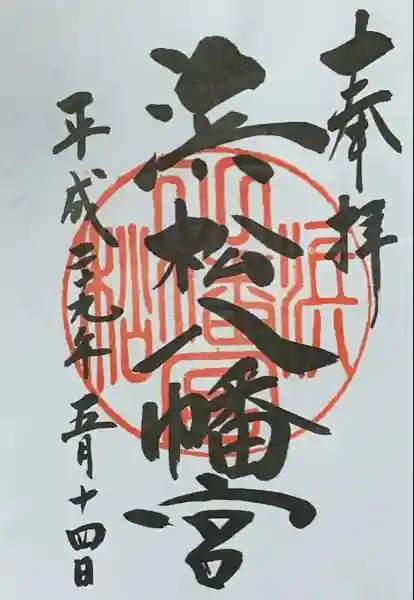 奉拝
浜松八幡宮
平成二十九年五月十四日
浜松八幡宮